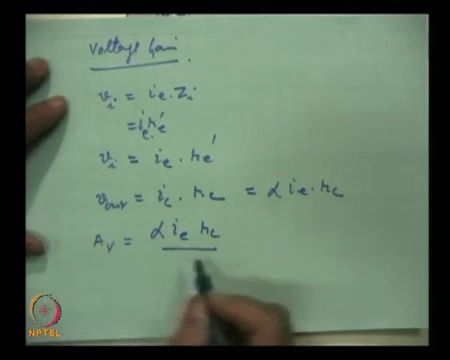 Voltage Gain.
v_i = i_e . Z_i
= i_e r_e'
v_i = i_e . r_e'
v_out = i_c . r_c = α i_e . r_c
A_v = α i_e r_c
NPTEL